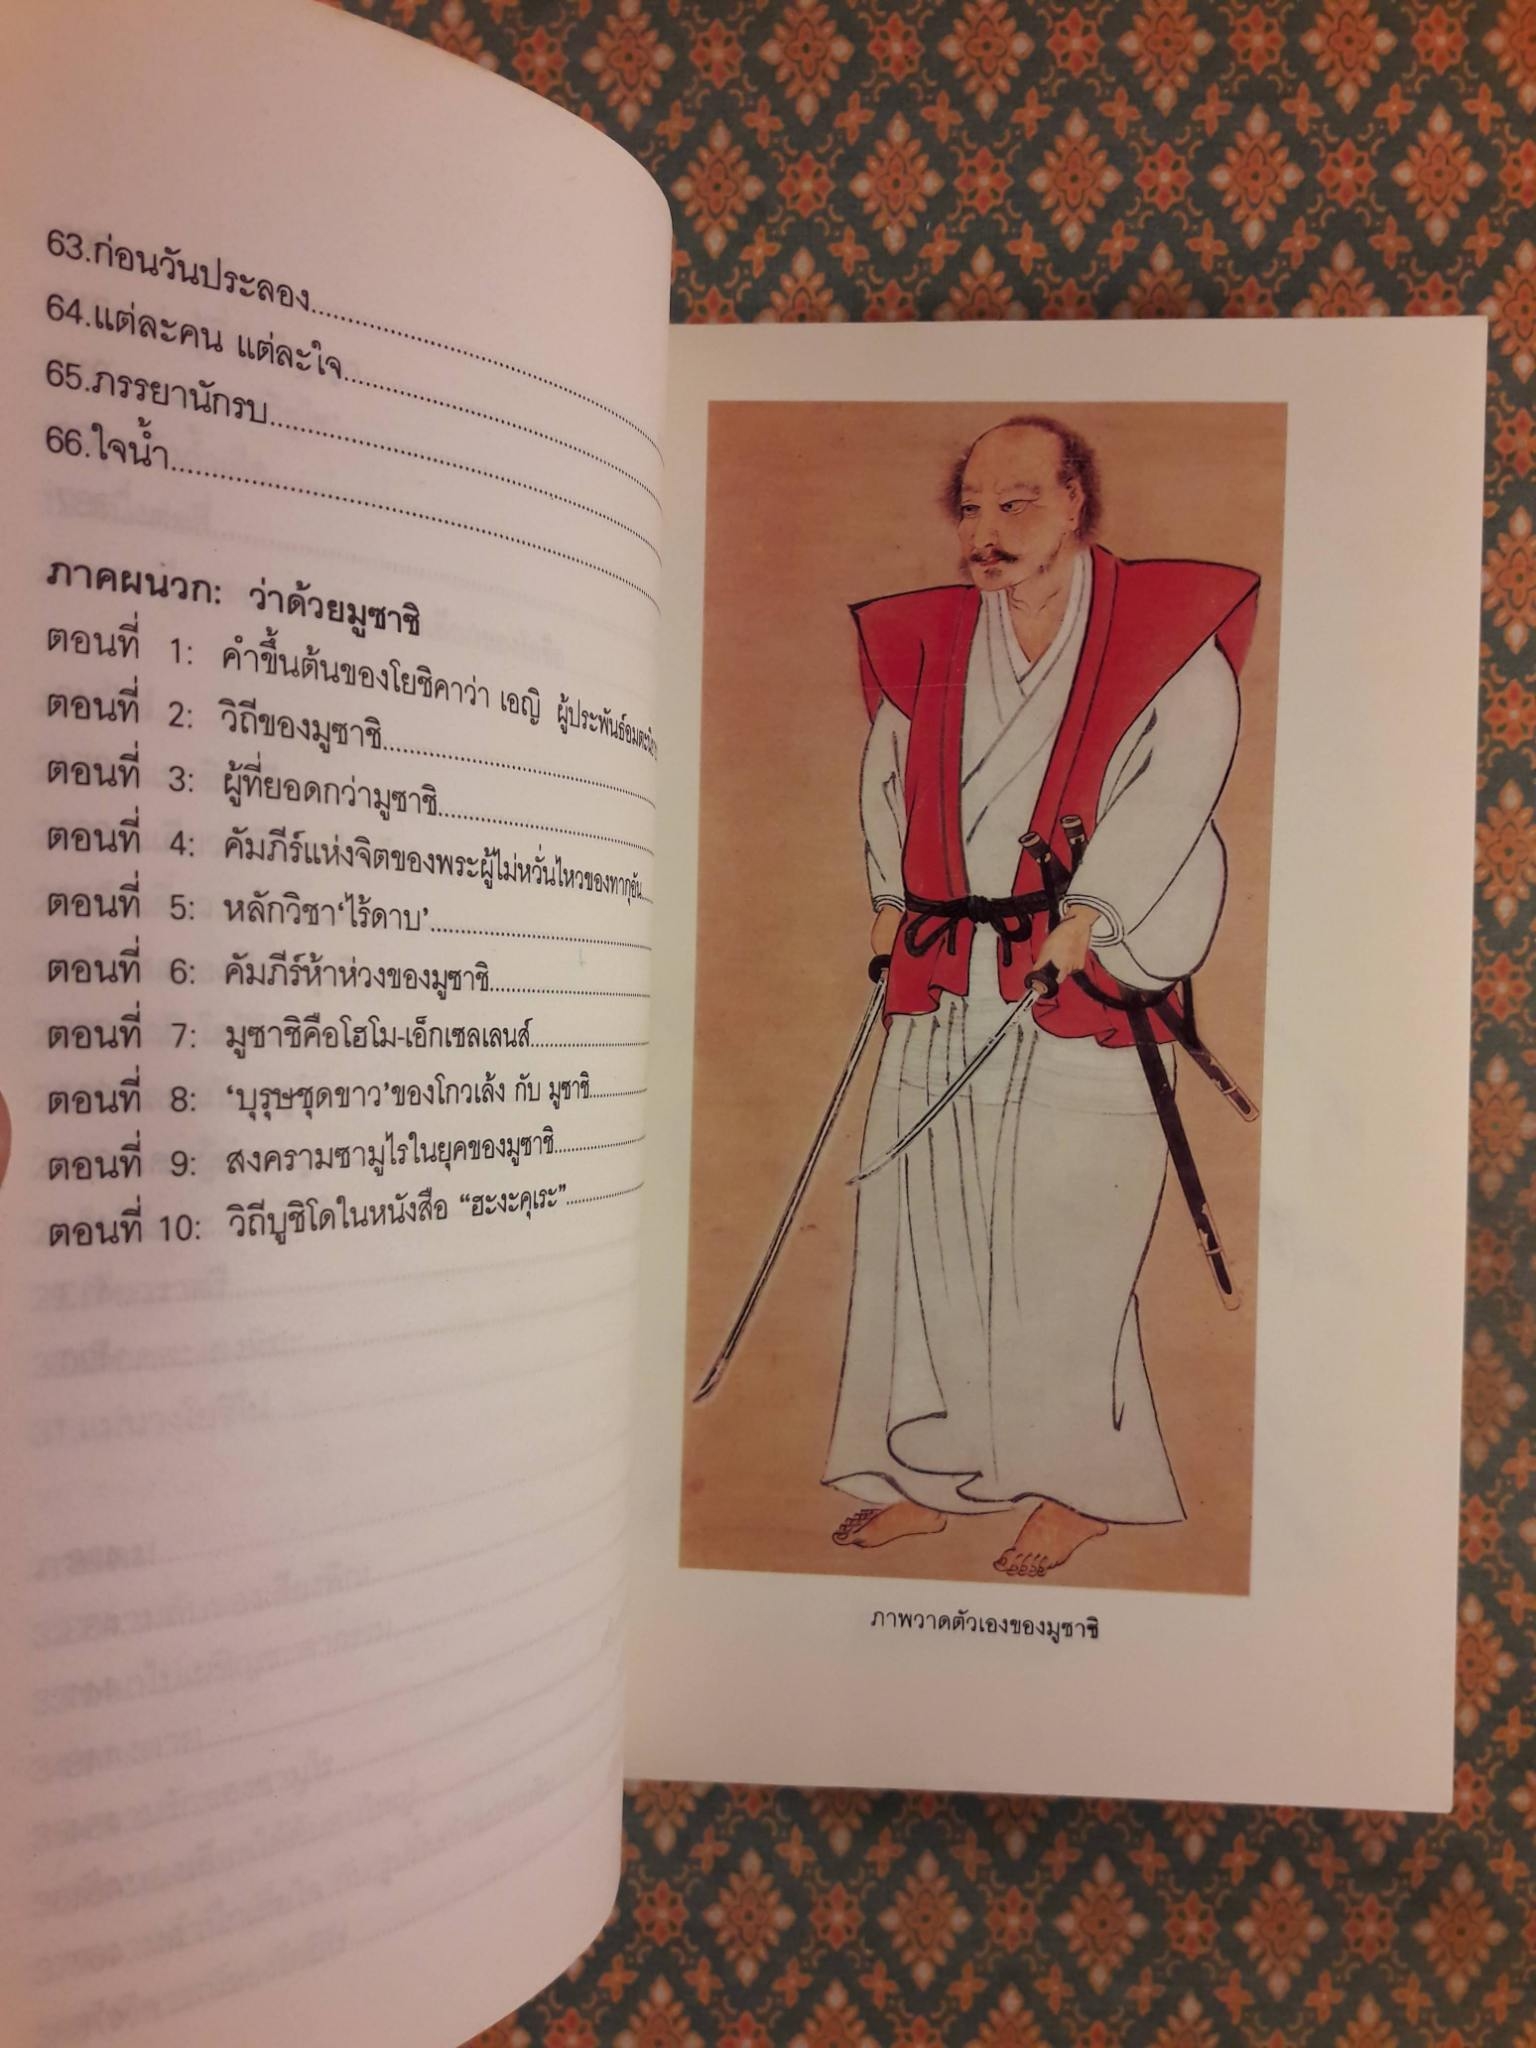 63.ก่อนวันประลอง
64.แต่ละคน แต่ละใจ
65.ภรรยานักรบ
66.ใจน้ำ
ภาคผนวก: ว่าด้วยมูซาชิ
ตอนที่ 1: คำขึ้นต้นของโยชิคาว่า เอญิ
ตอนที่ 2: วิถีของมูซาชิ
ตอนที่ 3: ผู้ที่ยอดกว่ามูซาชิ
ตอนที่ 4: คัมภีร์แห่งจิตของพระผู้ไม่หวั่นไหวของทากุอัน
ตอนที่ 5: หลักวิชา‘ไร้ดาบ’
ตอนที่ 6: คัมภีร์ห้าห่วงของมูซาชิ
ตอนที่ 7: มูซาชิคือโฮโม-เอ็กเซลเลนส์
ตอนที่ 8: ‘บุรุษชุดขาว’ของโกวเล้ง กับ มูซาชิ
ตอนที่ 9: สงครามซามูไรในยุคของมูซาชิ
ตอนที่ 10: วิถีบูชิโดในหนังสือ “ฮะงะคุเระ”
ภาพวาดตัวเองของมูซาชิ